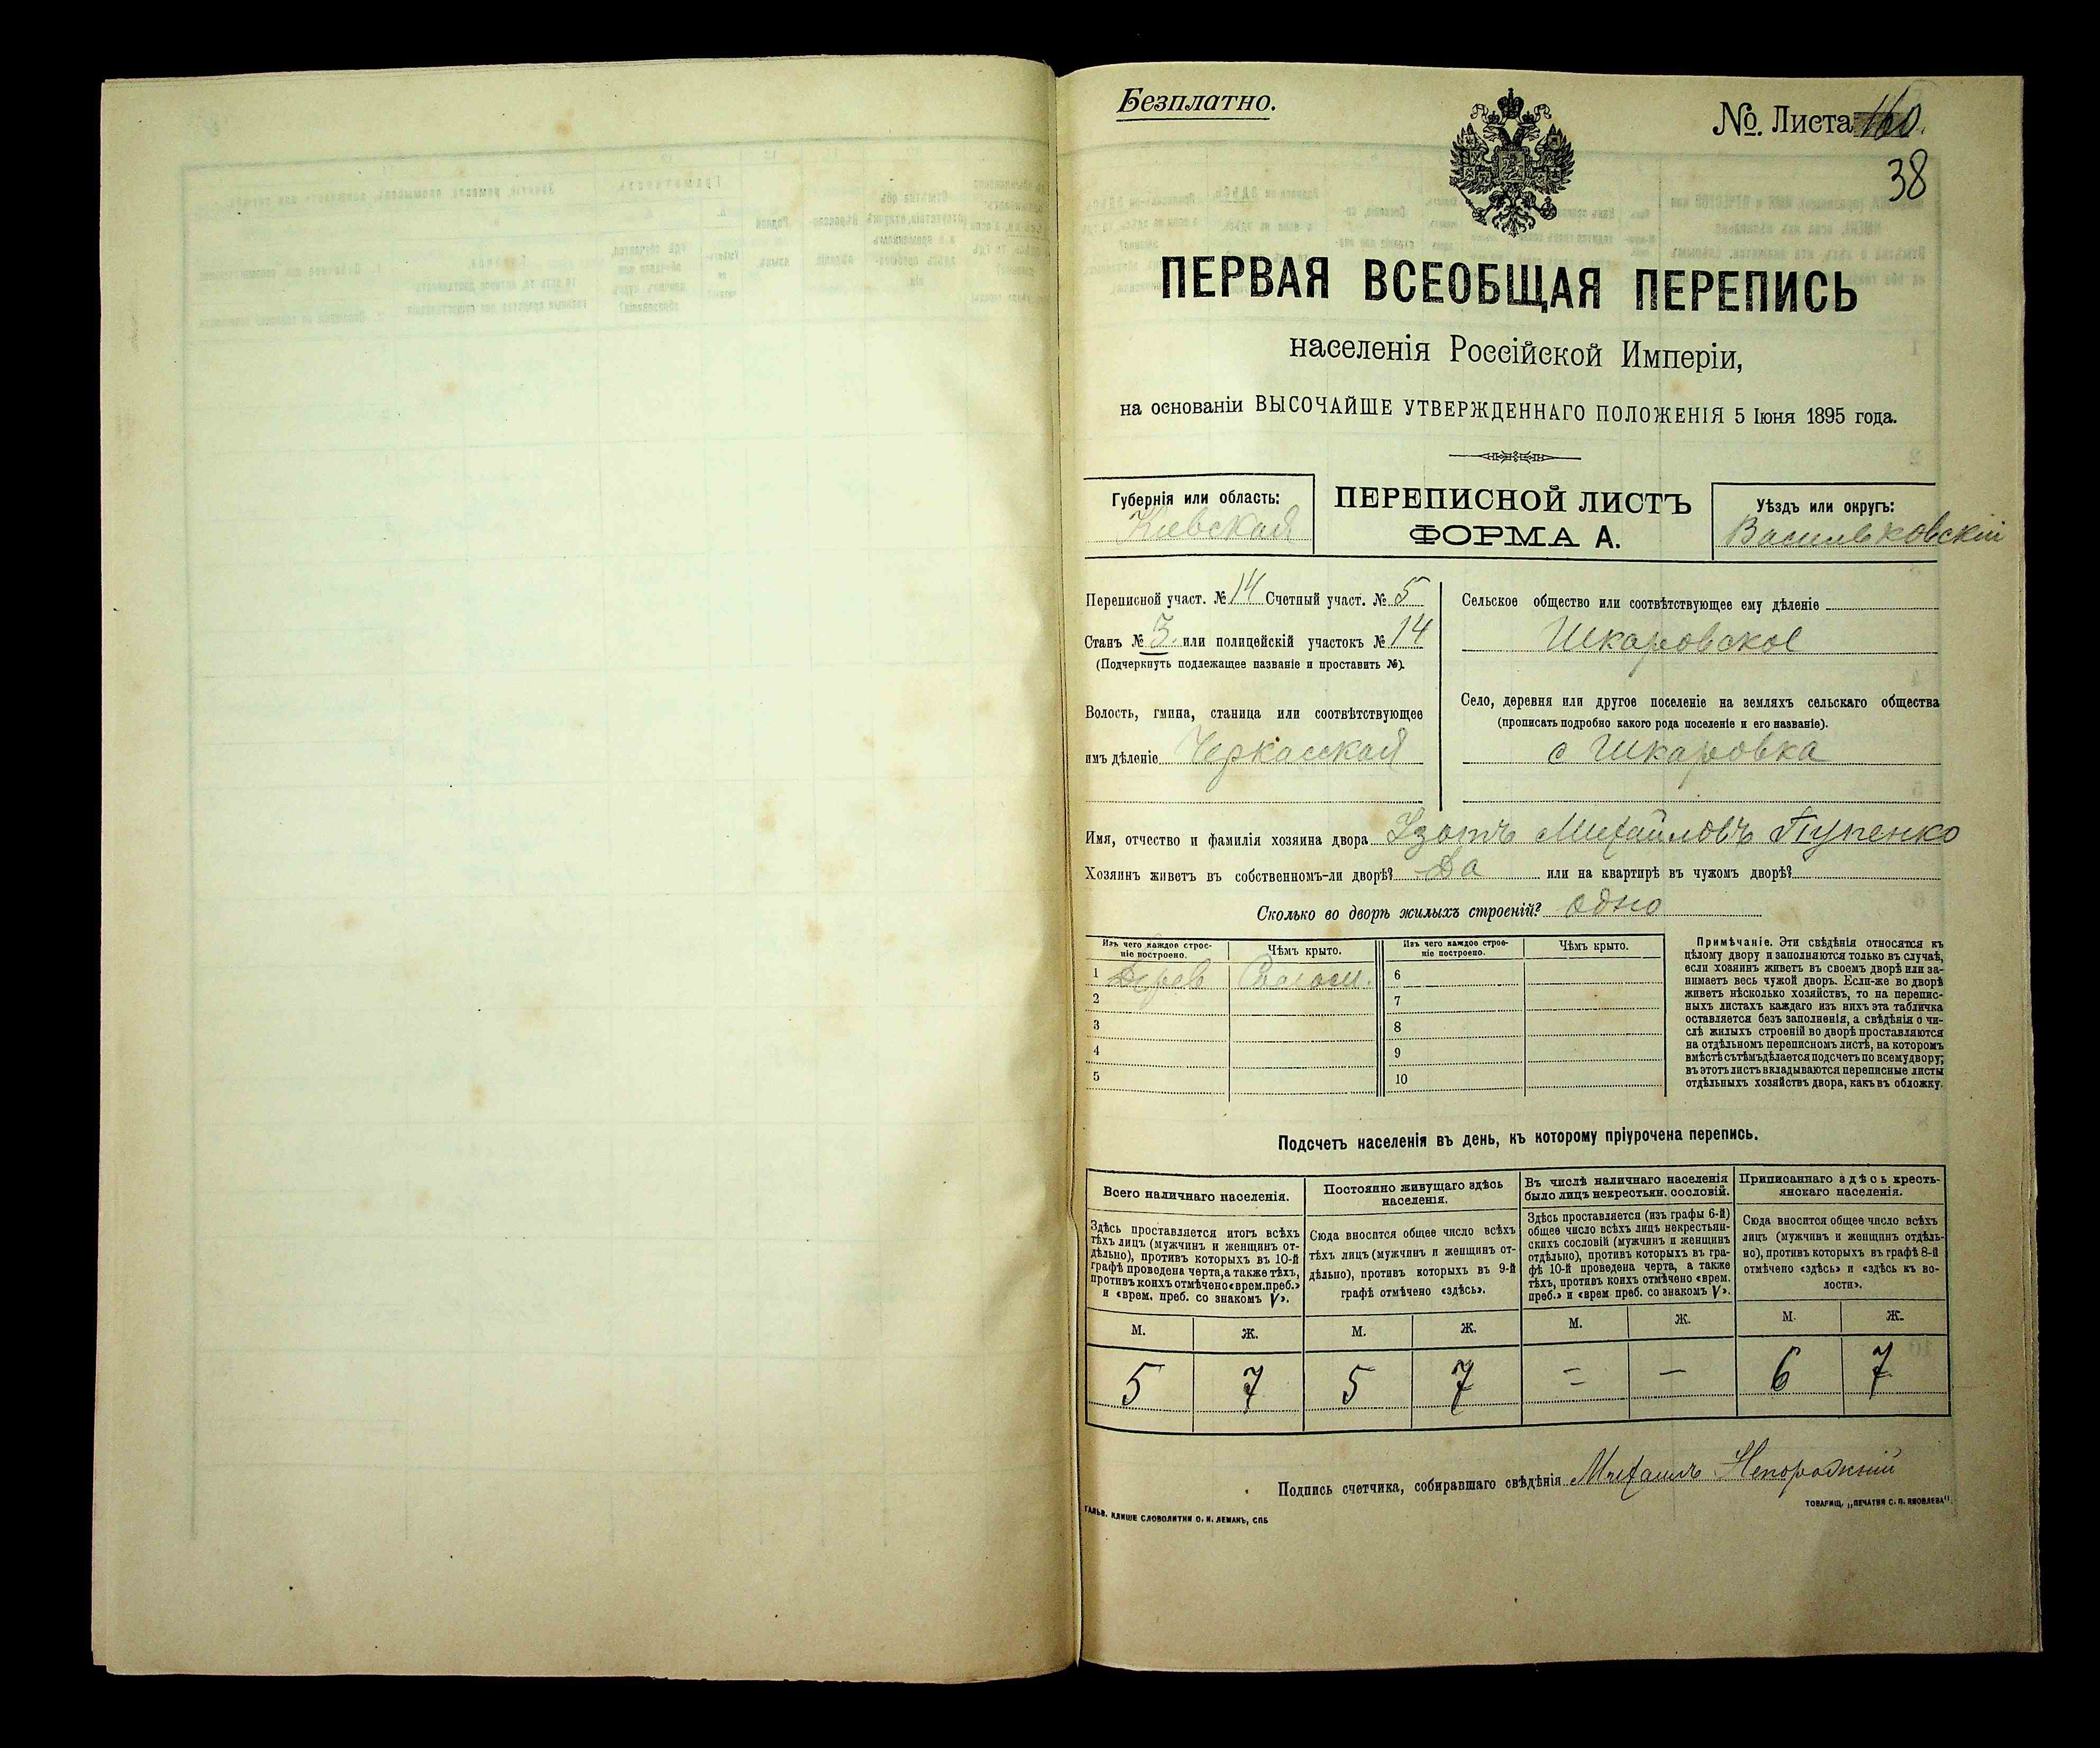 Безплатно.
№. Листа 160.
38
ПЕРВАЯ ВСЕОБЩАЯ ПЕРЕПИСЬ
населенія Россійской Имперіи,
на основаніи ВЫСОЧАЙШЕ УТВЕРЖДЕННАГО ПОЛОЖЕНІЯ 5 Іюня 1895 года.
Губернія или область:
Кіевская
ПЕРЕПИСНОЙ ЛИСТЪ
ФОРМА А.
Уѣздъ или округъ:
Васильковскій
Переписной участ. № 14 Счетный участ. № 5
Станъ № 3. или полицейскій участокъ № 14
(Подчеркнуть подлежащее названіе и проставить №).
Волость, гмина, станица или соотвѣтствующее
имъ дѣленіе Черкасская
Сельское общество или соотвѣтствующее ему дѣленіе
Шкаровское
Село, деревня или другое поселеніе на земляхъ сельскаго общества
(прописать подробно какого рода поселеніе и его названіе).
с Шкаровка
Имя, отчество и фамилія хозяина двора Изотъ Михайловъ
Хозяинъ живетъ въ собственномъ-ли дворѣ? Да или на квартирѣ въ чужомъ дворѣ?
Сколько во дворѣ жилыхъ строеній? одно
Изъ чего каждое строе-
ніе построено.
Чѣмъ крыто.
Изъ чего каждое строе-
ніе построено.
Чѣмъ крыто.
1 Дерев Солом. 6
2 7
3 8
4 9
5 10
Примѣчаніе. Эти свѣдѣнія относятся къ
цѣлому двору и заполняются только въ случаѣ,
если хозяинъ живетъ въ своемъ дворѣ или за-
нимаетъ весь чужой дворъ. Если-же во дворѣ
живетъ нѣсколько хозяйствъ, то на перепис-
ныхъ листахъ каждаго изъ нихъ эта табличка
оставляется безъ заполненія, а свѣдѣнія о чи-
слѣ жилыхъ строеній во дворѣ проставляются
на отдѣльномъ переписномъ листѣ, на которомъ
вмѣстѣ съ тѣмъ дѣлается подсчетъ по всему двору;
въ этотъ листъ вкладываются переписные листы
отдѣльныхъ хозяйствъ двора, какъ въ обложку.
Подсчетъ населенія въ день, къ которому пріурочена перепись.
Всего наличнаго населенія.
Здѣсь проставляется итогъ всѣхъ
тѣхъ лицъ (мужчинъ и женщинъ от-
дѣльно), противъ которыхъ въ 10-й
графѣ проведена черта, а также тѣхъ,
противъ коихъ отмѣчено «врем. преб.»
и «врем. преб. со знакомъ V».
Постоянно живущаго здѣсь
населенія.
Сюда вносится общее число всѣхъ
тѣхъ лицъ (мужчинъ и женщинъ от-
дѣльно), противъ которыхъ въ 9-й
графѣ отмѣчено «здѣсь».
Въ числѣ наличнаго населенія
было лицъ некрестьян. сословій.
Здѣсь проставляется (изъ графы 6-й)
общее число всѣхъ лицъ некрестьян-
скихъ сословій (мужчинъ и женщинъ
отдѣльно), противъ которыхъ въ гра-
фѣ 10-й проведена черта, а также
тѣхъ, противъ коихъ отмѣчено «врем.
преб.» и «врем преб. со знакомъ V».
Приписаннаго здѣсь кресть-
янскаго населенія.
Сюда вносится общее число всѣхъ
лицъ (мужчинъ и женщинъ отдѣль-
но), противъ которыхъ въ графѣ 8-й
отмѣчено «здѣсь» и «здѣсь къ во-
лости».
М. Ж. М. Ж. М. Ж. М. Ж.
5 7 5 7 = — 6 7
Подпись счетчика, собиравшаго свѣдѣнія Михаилъ Непорожній
ГАЛЬВ. КЛИШЕ СЛОВОЛИТНИ О. И. ЛЕМАНЪ, СПБ
ТОВАРИЩ. „ПЕЧАТНЯ С. П. ЯКОВЛЕВА".